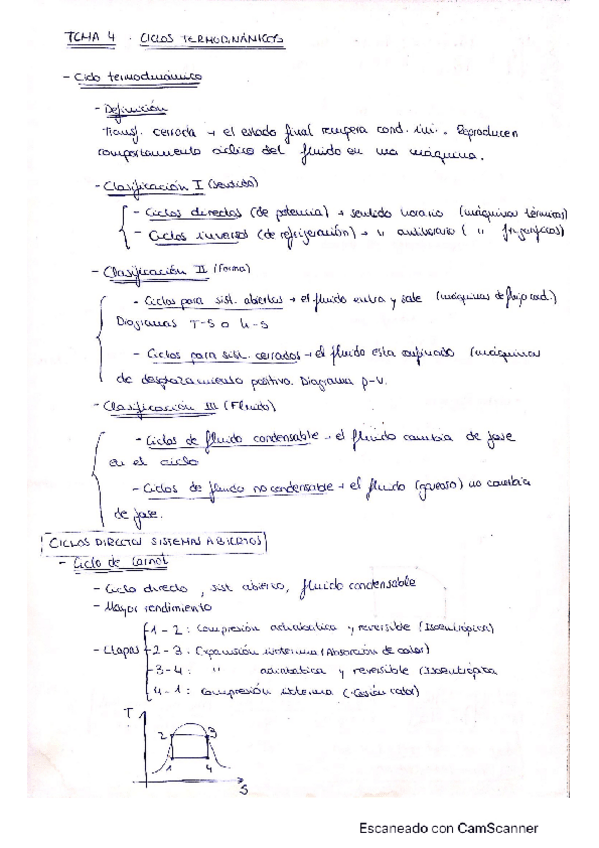 TEMA 4 . CICLOS TERMODINÁMICOS
- Ciclo termodinámico
- Definición
Transf. cerrada → el estado final recupera cond. ini. . Reproducen
comportamiento cíclico del fluido en una máquina.
- Clasificación I (sentido)
- Ciclos directos (de potencia) → sentido horario (máquinas térmicas)
- Ciclos inversos (de refrigeración) → " antihorario ( " frigoríficas)
- Clasificación II (Forma)
- Ciclos para sist. abiertos → el fluido entra y sale (máquinas de flujo cond.)
Diagramas T-S o h-S
- Ciclos para sist. cerrados → el fluido esta confinado (máquinas
de desplazamiento positivo. Diagrama p-V.
- Clasificación III (Fluido)
- Ciclos de fluido condensable → el fluido cambia de fase
en el ciclo
- Ciclos de fluido no condensable → el fluido (gaseoso) no cambia
de fase.
CICLOS DIRECTOS SISTEMAS ABIERTOS
- Ciclo de Carnot
- Ciclo directo , sist abierto, fluido condensable
- Mayor rendimiento
1-2 : Compresión adiabatica y reversible (Isoentrópica)
- Etapas 2-3 : Expansión isoterma (Absorción de calor)
3-4 : " adiabatica y reversible (Isoentrópica
4-1 : Compresión isoterma (Cesión calor)
T
2 3
1 4
S
Escaneado con CamScanner